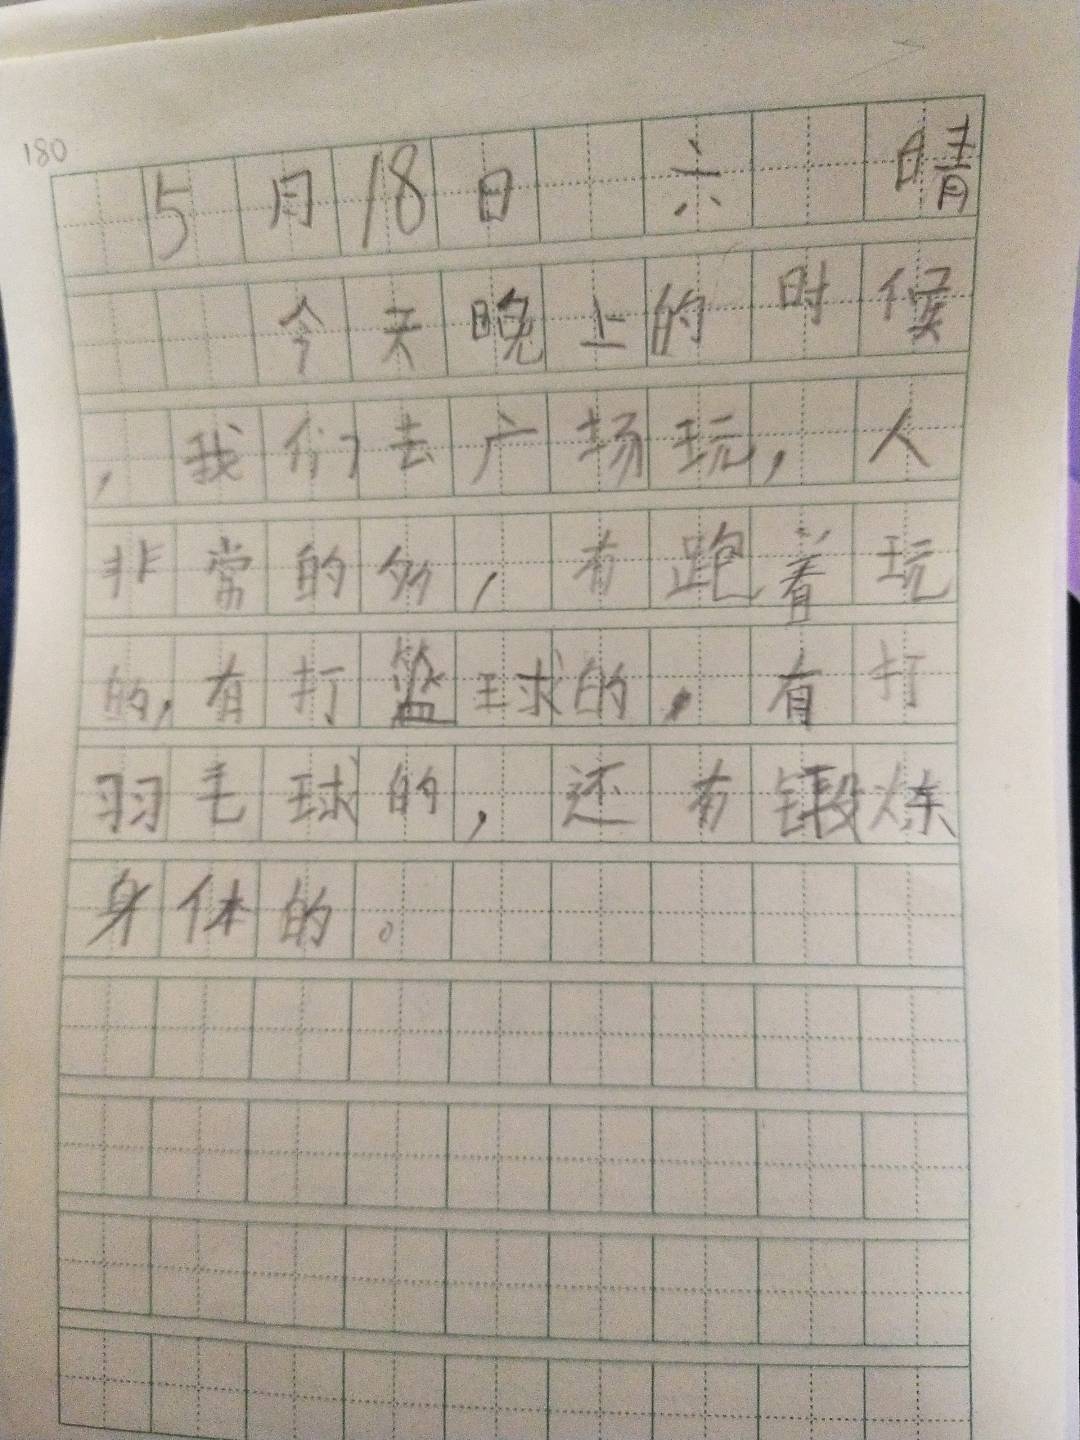 180
5月18日 六 晴
今天晚上的时候
，我们去广场玩，人
非常的多，有跑着玩
的，有打篮球的，有打
羽毛球的，还有锻炼
身体的。